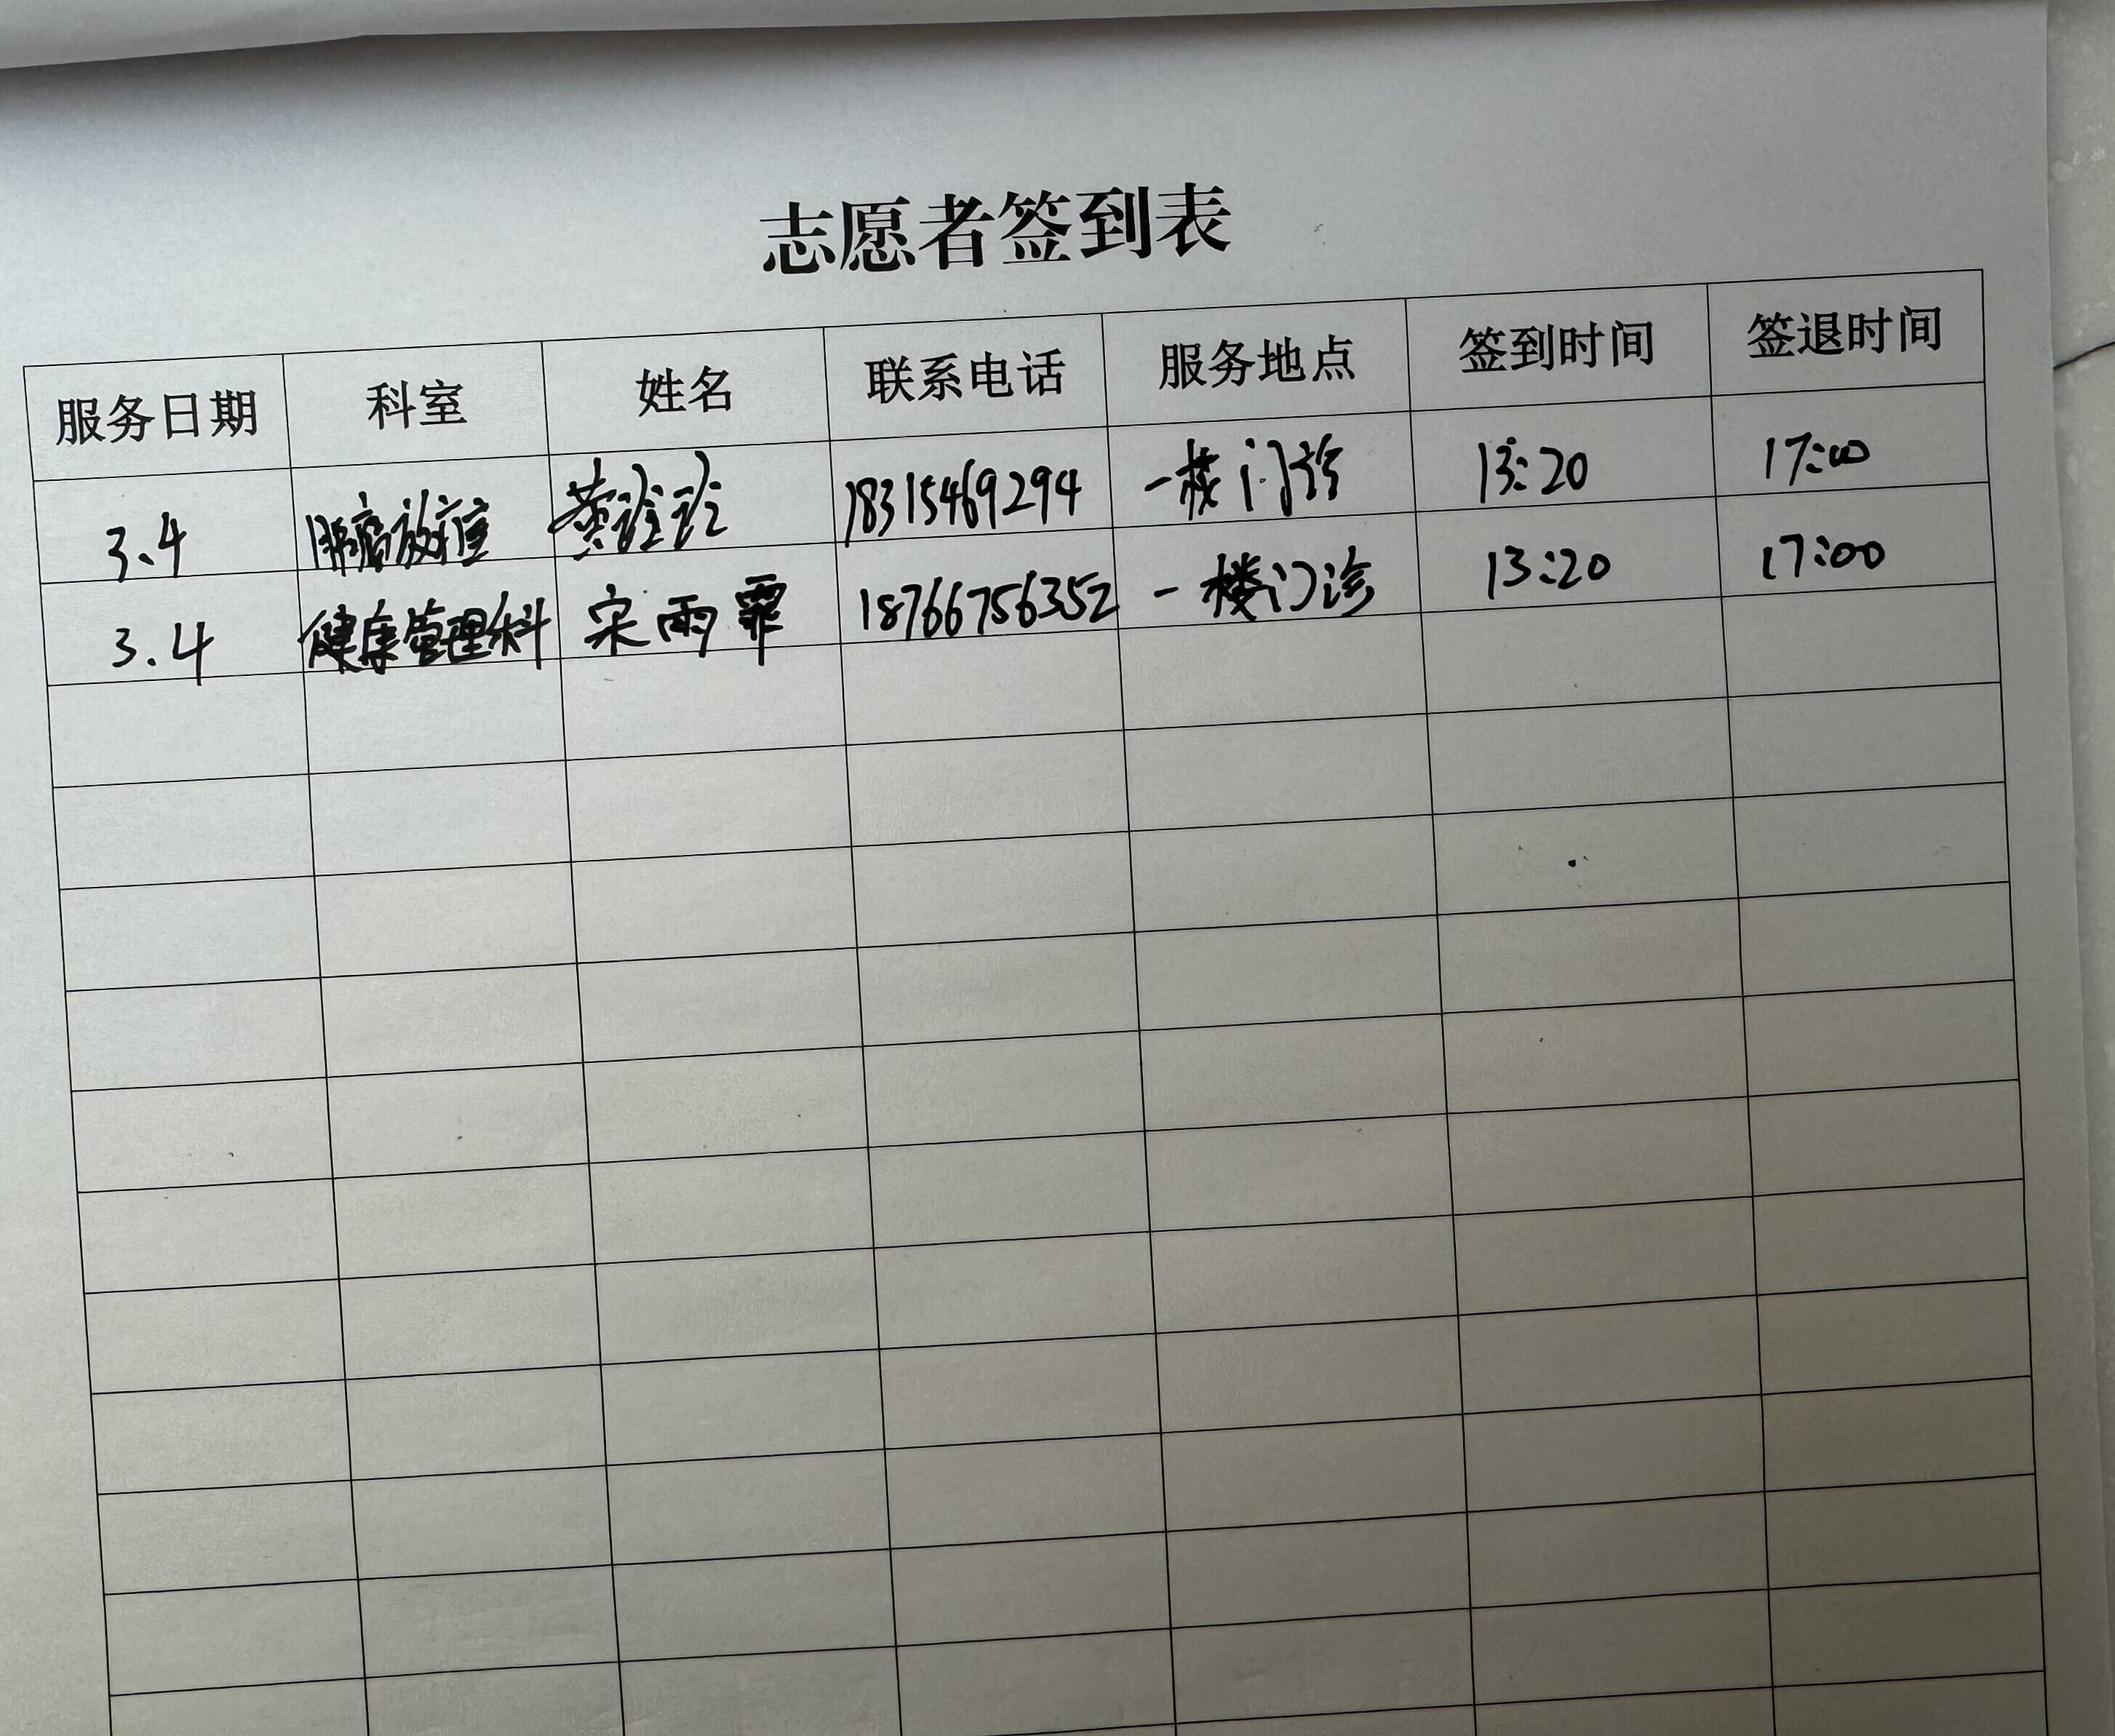 志愿者签到表
服务日期 科室 姓名 联系电话 服务地点 签到时间 签退时间
3.4 黄 18315469294 一楼门诊 13:20 17:00
3.4 健康管理科 宋雨霏 18766756352 一楼门诊 13:20 17:00